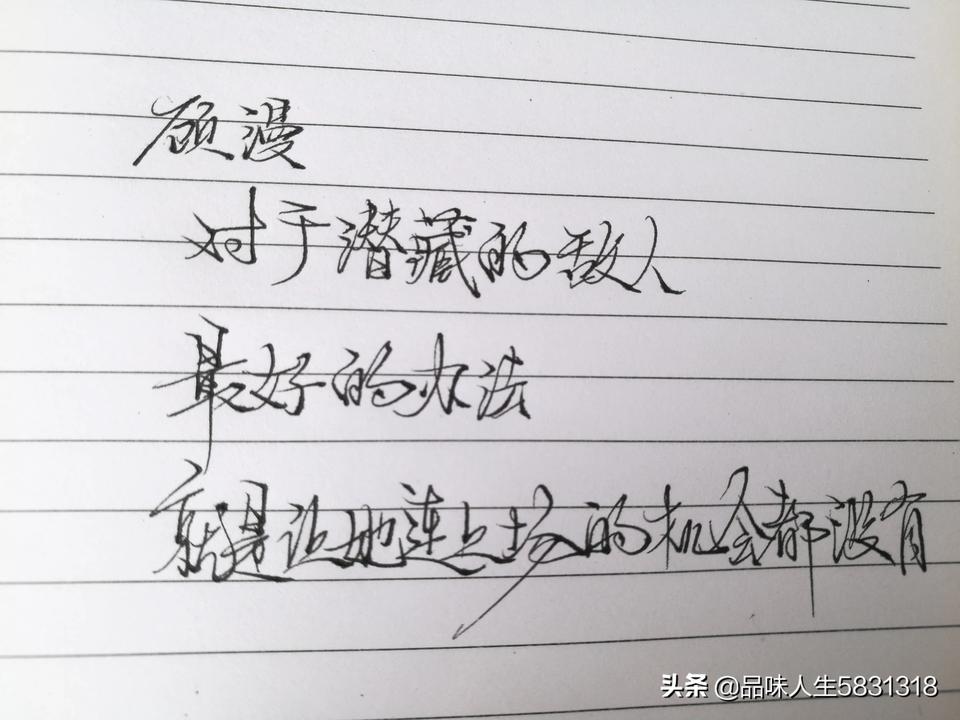 顾漫
对于潜藏的敌人
最好的办法
就是让她连上场的机会都没有
头条 @品味人生5831318